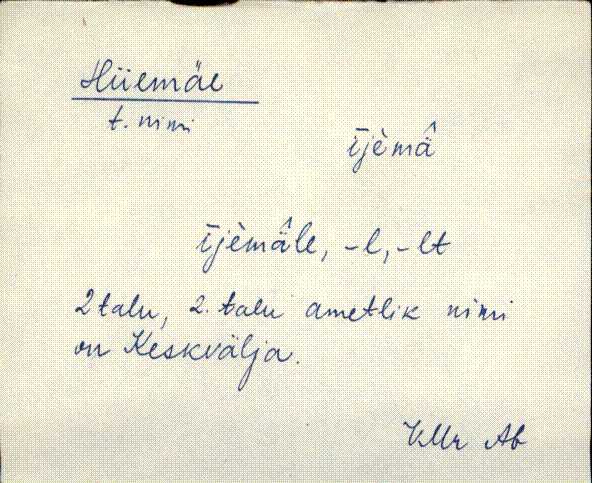 Hiiemäe
t. nimi
ījèmä̂
ījèmä̂le, -l, -lt
2 talu, 2. talu ametlik nimi
on Keskvälja.
VMr Ab